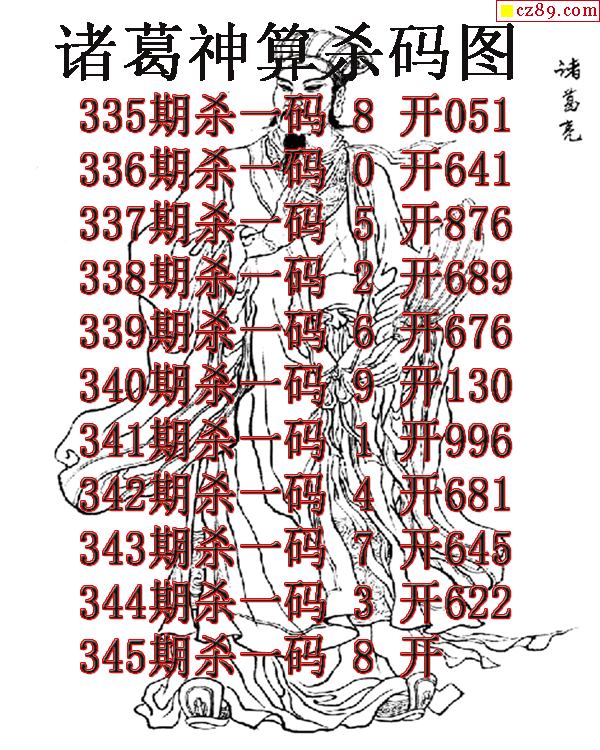 cz89.com
诸葛神算杀码图
诸葛亮
335期杀一码 8 开051
336期杀一码 0 开641
337期杀一码 5 开876
338期杀一码 2 开689
339期杀一码 6 开676
340期杀一码 9 开130
341期杀一码 1 开996
342期杀一码 4 开681
343期杀一码 7 开645
344期杀一码 3 开622
345期杀一码 8 开